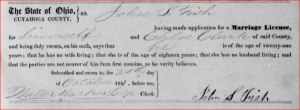 The State of Ohio,
CUYAHOGA COUNTY, ss. John S. Fish
having made application for a Marriage License,
for himself and Clark of said County,
and being duly sworn, on his oath, says that he is of the age of twenty-one
years, that he has no wife living; that she is of the age of eighteen years; that she has no husband living; and
that the parties are not nearer of kin than first cousins, as he verily believes.
Subscribed and sworn to, this
October 185
Clerk: John S. Fish